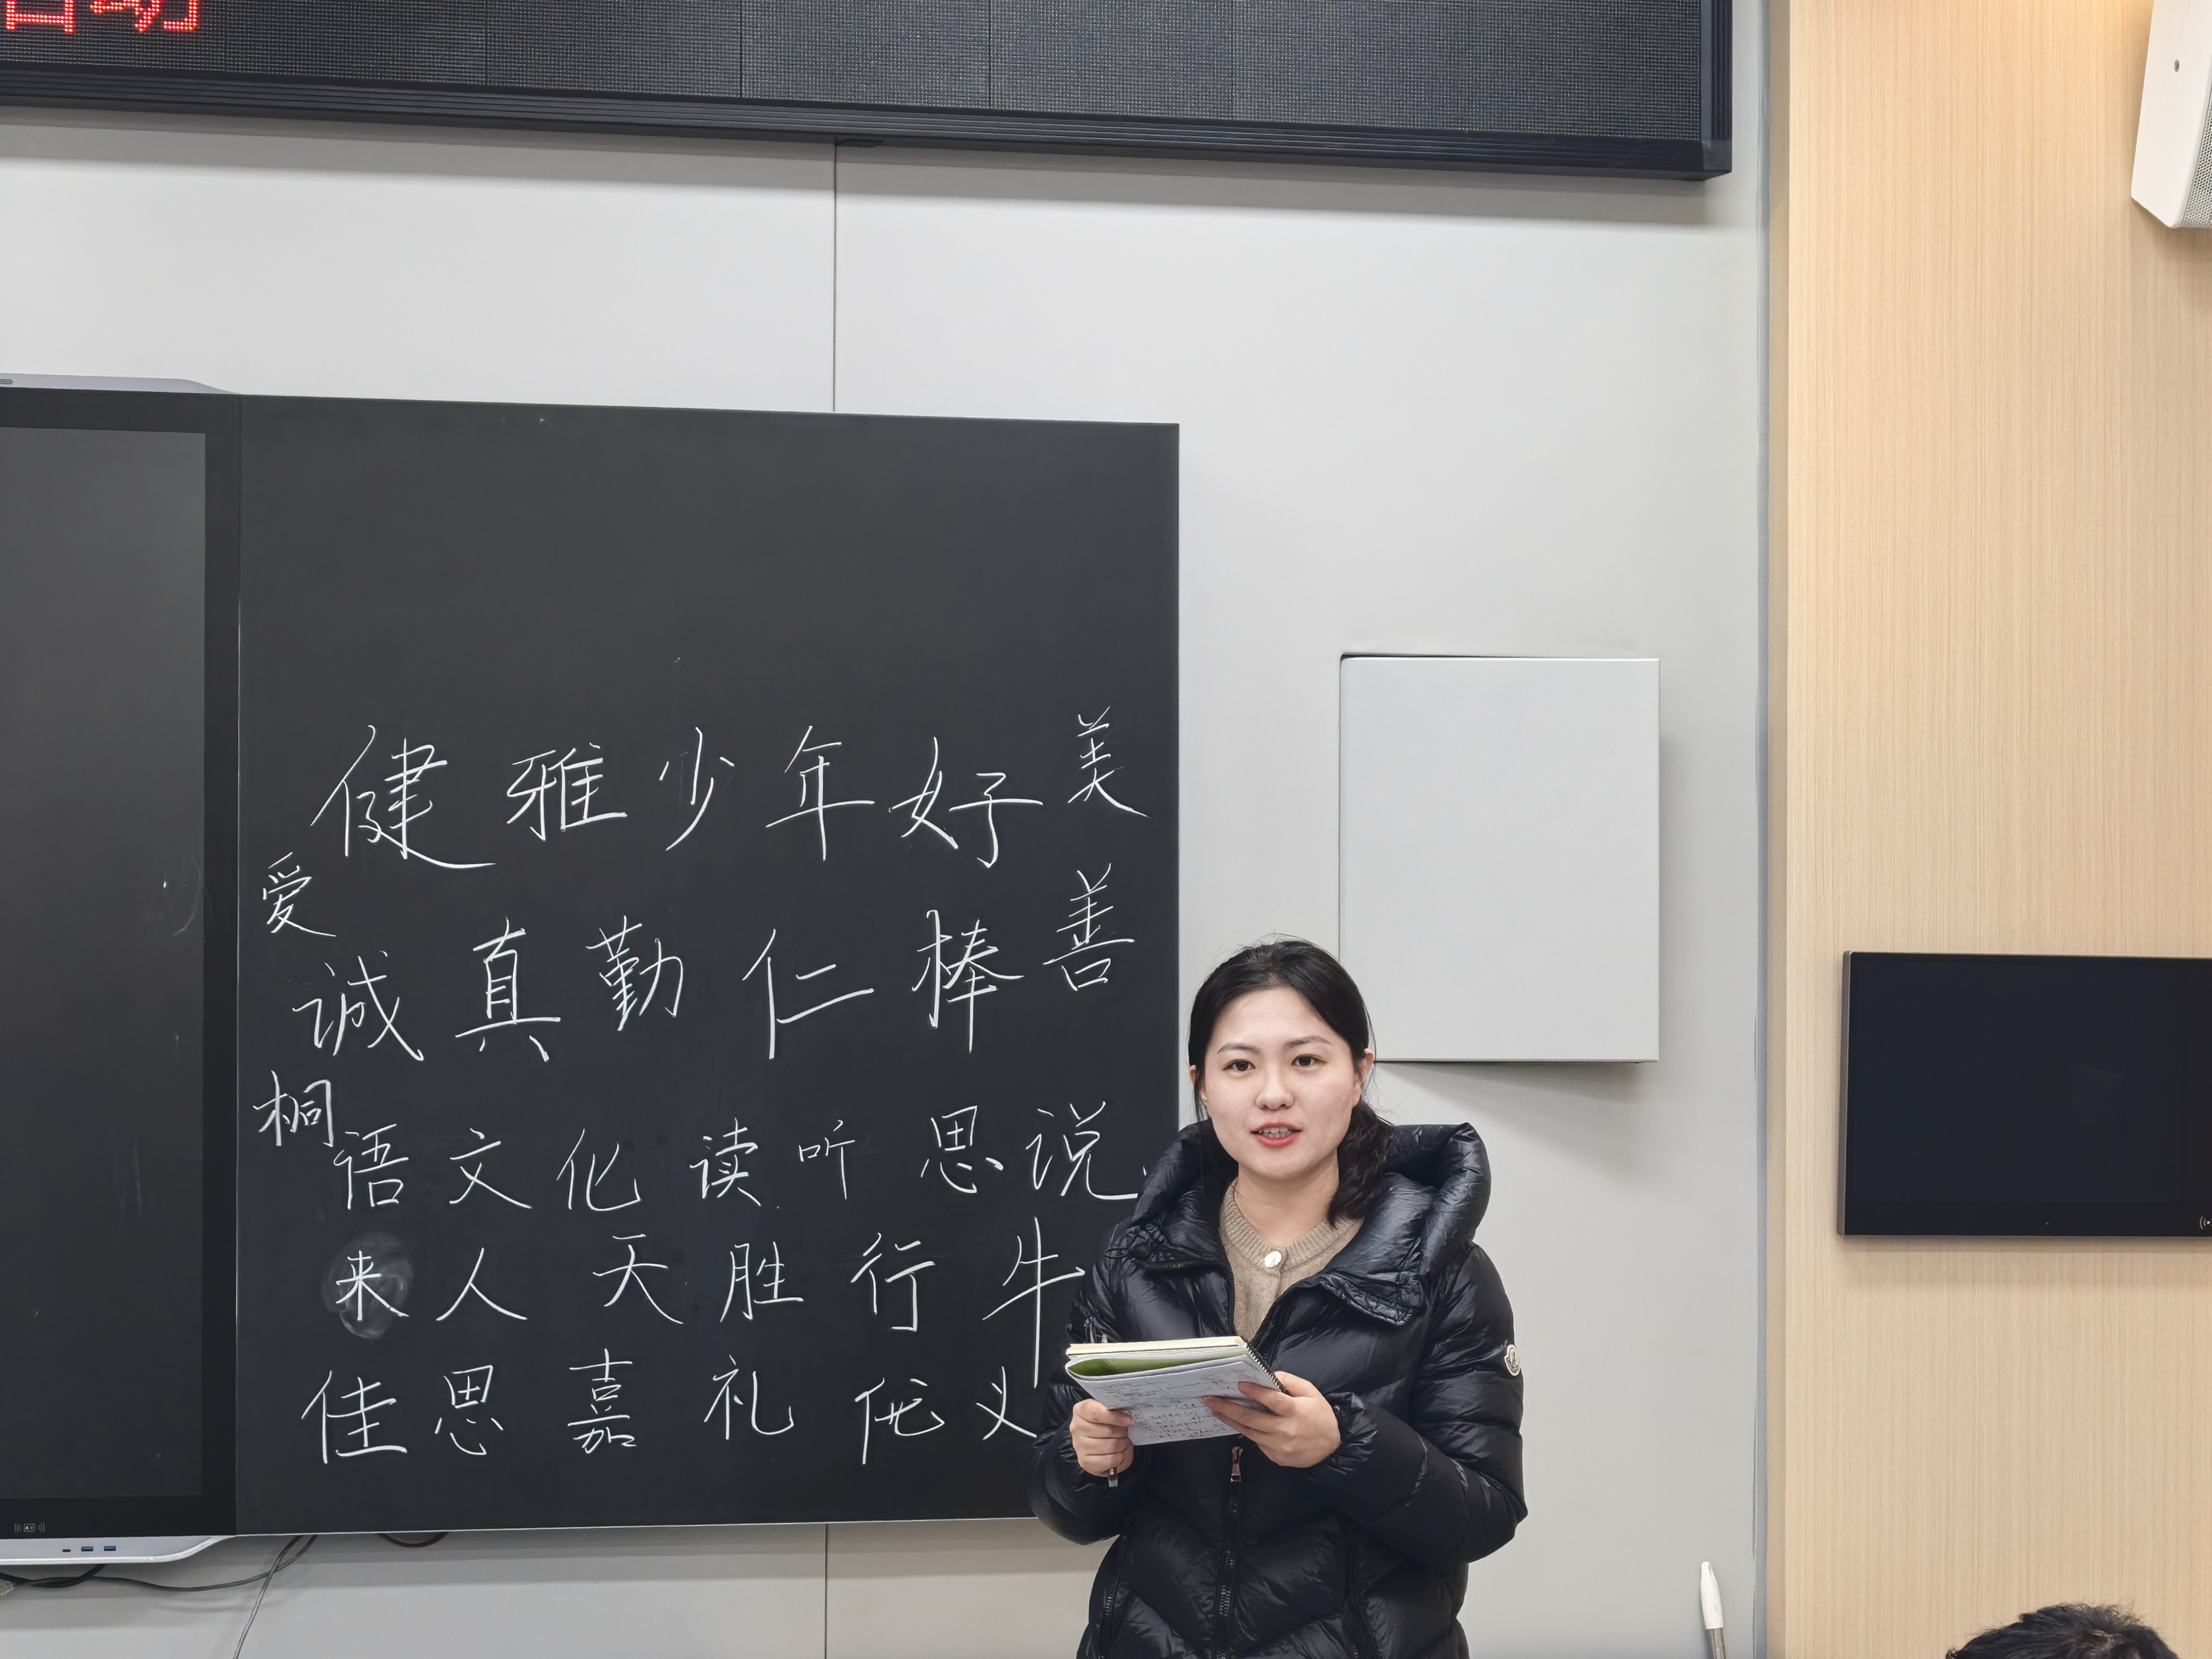 健雅少年好美
爱
诚真勤仁棒善
桐
语文化读听思说
来人天胜行牛
佳思嘉礼优义